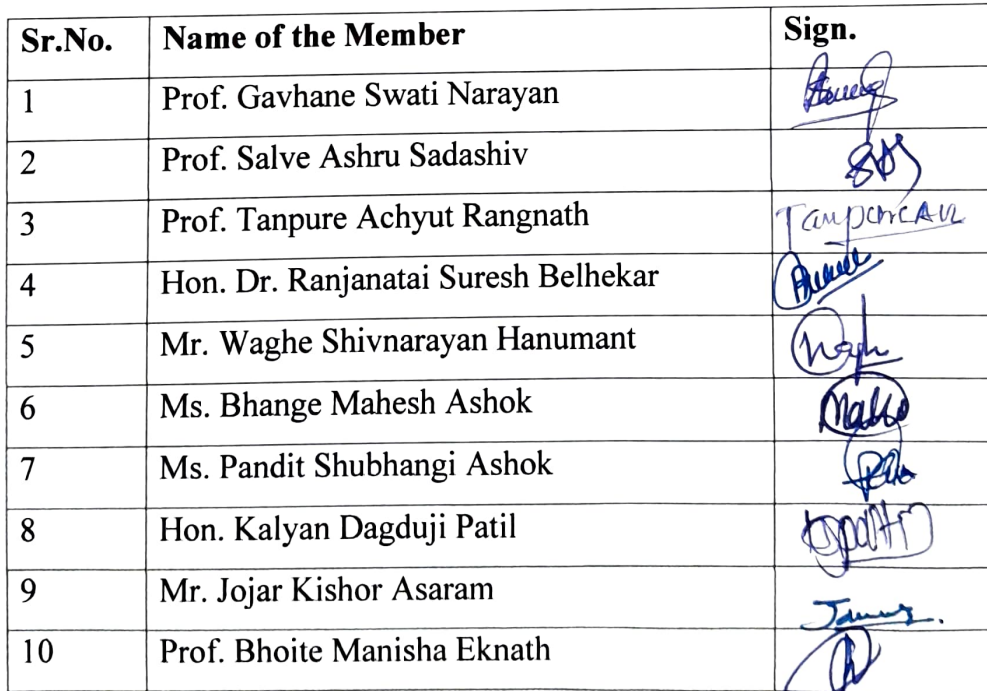 Sr.No. Name of the Member Sign.
1 Prof. Gavhane Swati Narayan
2 Prof. Salve Ashru Sadashiv
3 Prof. Tanpure Achyut Rangnath TanpureAR
4 Hon. Dr. Ranjanatai Suresh Belhekar
5 Mr. Waghe Shivnarayan Hanumant
6 Ms. Bhange Mahesh Ashok
7 Ms. Pandit Shubhangi Ashok
8 Hon. Kalyan Dagduji Patil
9 Mr. Jojar Kishor Asaram
10 Prof. Bhoite Manisha Eknath